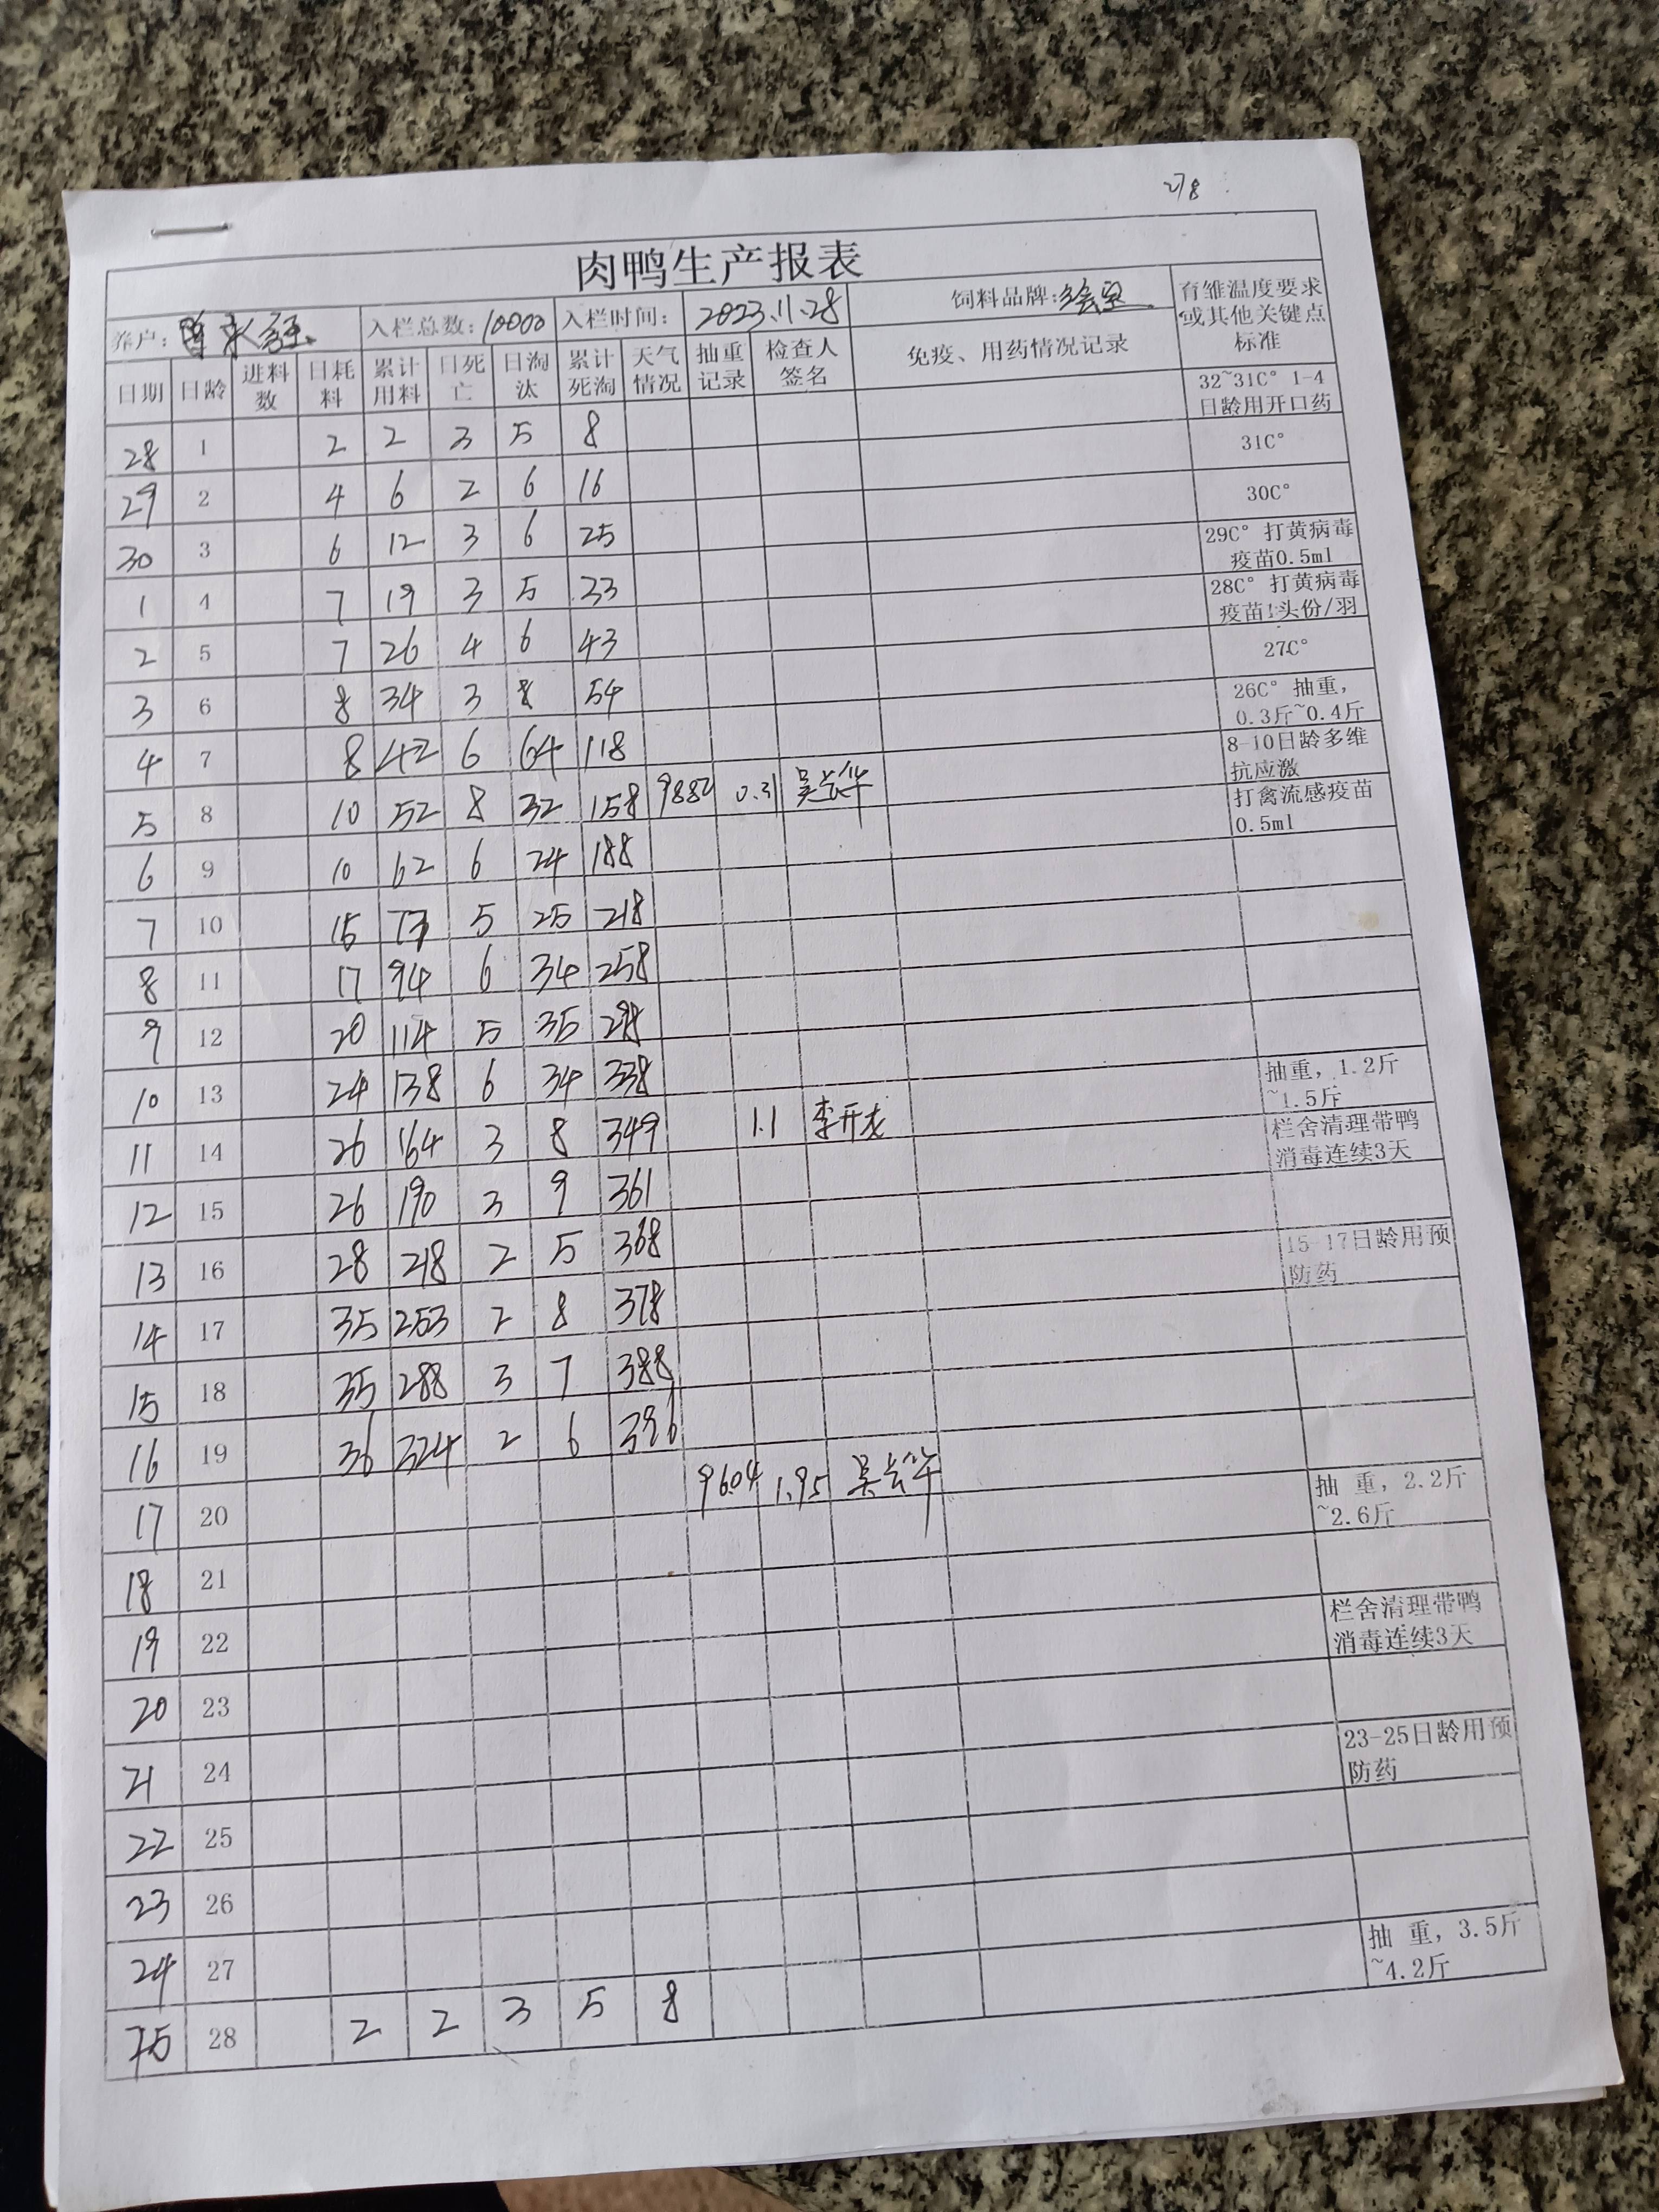 278
肉鸭生产报表
养户: 入栏总数:10000 入栏时间: 2023.11.28 饲料品牌: 育雏温度要求或其他关键点标准
日期 日龄 进料数 日耗料 累计用料 日死亡 日淘汰 累计死淘 天气情况 抽重记录 检查人签名 免疫、用药情况记录
28 1 2 2 3 5 8 32~31C° 1-4日龄用开口药
29 2 4 6 2 6 16 31C°
30 3 6 12 3 6 25 30C°
1 4 7 19 3 5 33 29C° 打黄病毒疫苗0.5ml
2 5 7 26 4 6 43 28C° 打黄病毒疫苗1头份/羽
3 6 8 34 3 8 54 27C°
4 7 8 42 6 64 118 26C° 抽重,0.3斤~0.4斤
5 8 10 52 8 32 158 9882 0.31 吴云华 8-10日龄多维抗应激
6 9 10 62 6 24 188 打禽流感疫苗0.5ml
7 10 15 77 5 25 218
8 11 17 94 6 34 258
9 12 20 114 5 35 298
10 13 24 138 6 34 338
11 14 26 164 3 8 349 1.1 李开龙 抽重, 1.2斤~1.5斤
12 15 26 190 3 9 361 栏舍清理带鸭消毒连续3天
13 16 28 218 2 5 368
14 17 35 253 2 8 378 15-17日龄用预防药
15 18 35 288 3 7 388
16 19 36 324 2 6 396
17 20 9604 1.95 吴云华
18 21 抽 重, 2.2斤~2.6斤
19 22
20 23 栏舍清理带鸭消毒连续3天
21 24
22 25 23-25日龄用预防药
23 26
24 27
25 28 2 2 3 5 8 抽 重, 3.5斤~4.2斤